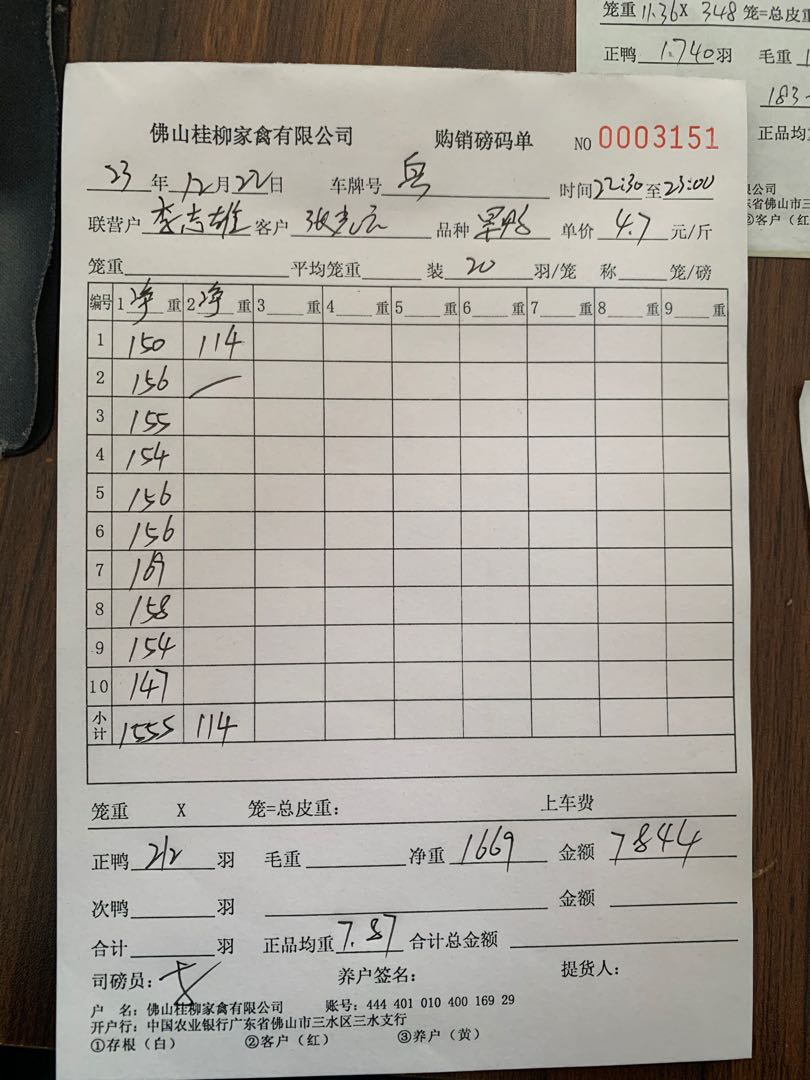 笼重 11.36 X 348 笼=总皮重
正鸭 1.740 羽 毛重
183
正品均
佛山桂柳家禽有限公司 购销磅码单 NO 0003151
23 年 12 月 22 日 车牌号 时间 22:30 至 23:00
联营户 李志雄 客户 品种 单价 4.7 元/斤
笼重 平均笼重 装 20 羽/笼 称 笼/磅
编号 1 净 重 2 净 重 3 重 4 重 5 重 6 重 7 重 8 重 9 重
1 150 114
2 156
3 155
4 154
5 156
6 156
7 169
8 158
9 154
10 147
小计 1555 114
笼重 X 笼=总皮重: 上车费
正鸭 212 羽 毛重 净重 1669 金额 7844
次鸭 羽 金额
合计 羽 正品均重 7.87 合计总金额
司磅员: 养户签名: 提货人:
户 名: 佛山桂柳家禽有限公司 账号: 444 401 010 400 169 29
开户行: 中国农业银行广东省佛山市三水区三水支行
①存根(白) ②客户(红) ③养户(黄)
公司
省佛山市三
②客户(红